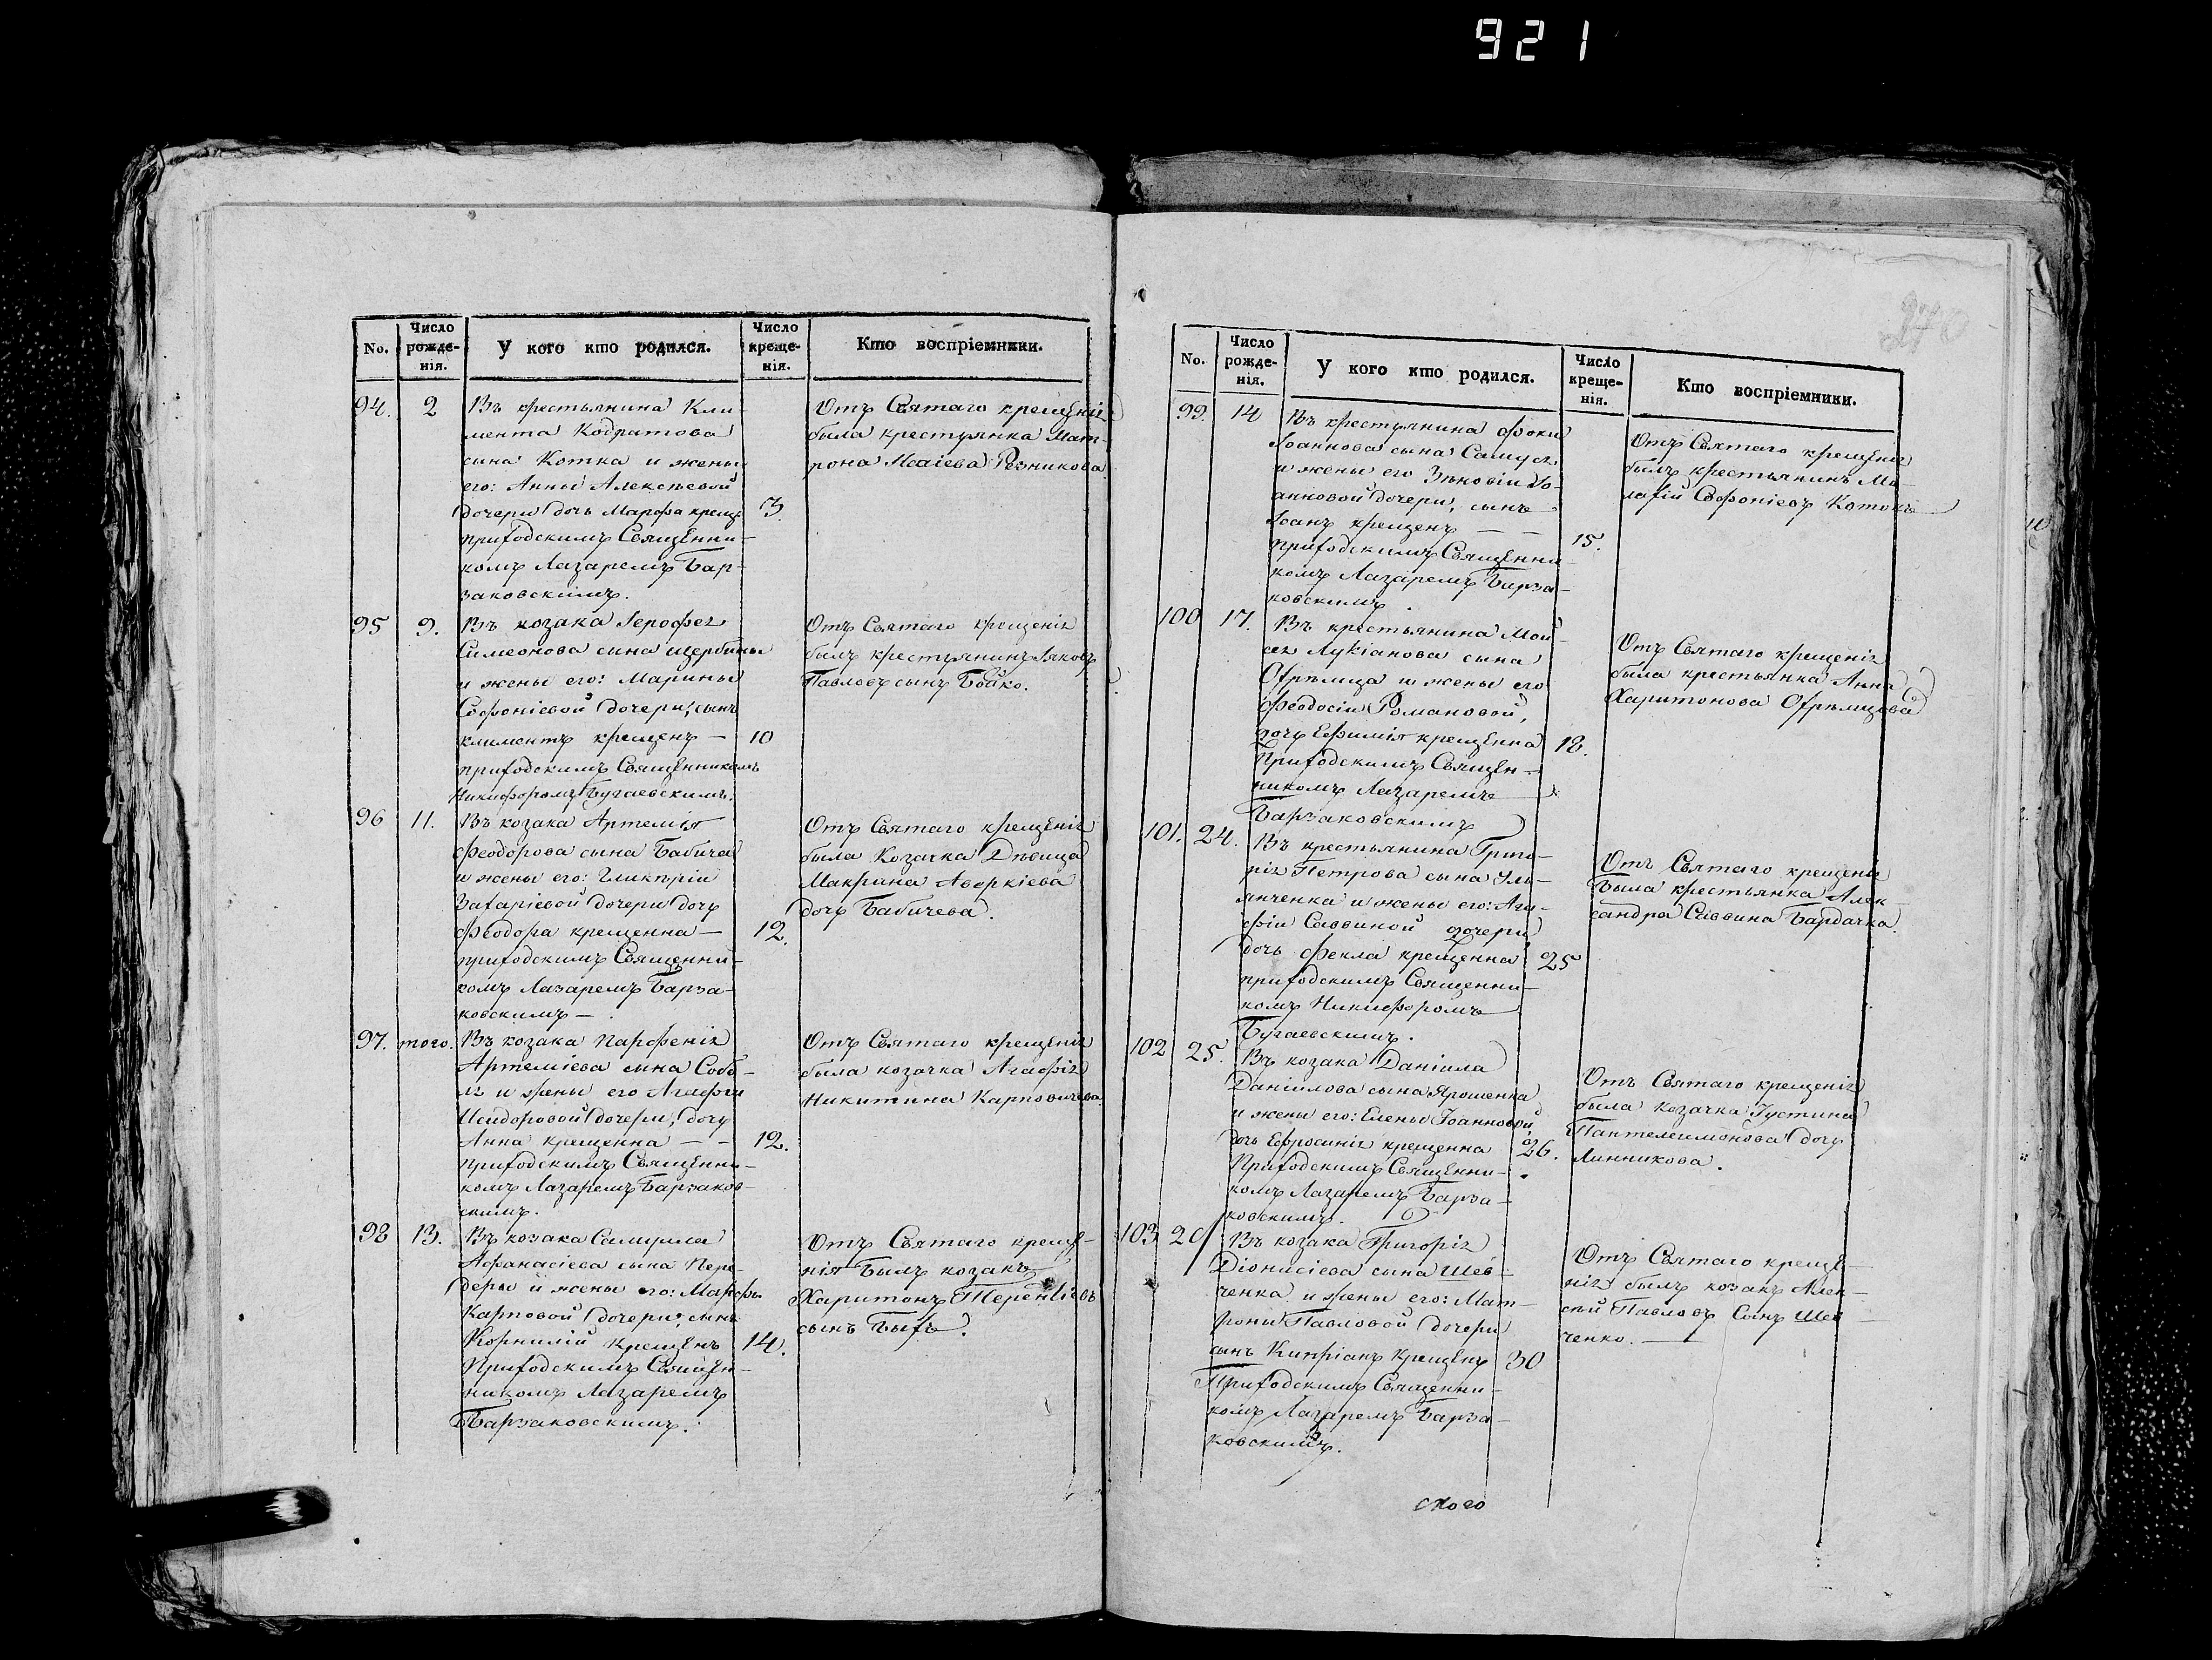 921
270
No.
Число рожде-нія.
У кого кто родился.
Число креще-нія.
Кто воспріемники.
94. 2
Въ крестьянина Кли-
мента Кодратова
сына Котка и жены
его: Анны Алексѣевой
дочери дочь Марфа креще
3.
приходскимъ Священни-
комъ Лазаремъ Бар-
заковскимъ.
Отъ Святаго крещенія
была крестьянка Мат-
рона Исаіева Резникова
95 9.
Въ козака Іерофея
Симеонова сына щербины
и жены его: Марины
Софоніевой дочери, сынъ
климентъ крещенъ — 10
приходскимъ Священникомъ
Никифоромъ Бугаевскимъ.
Отъ Святаго крещенія
былъ крестьянинъ Іяковъ
Павловъ сынъ Бойко.
96 11.
Въ козака Артемія
Феодорова сына Бабича
и жены его: Гликеріи
Захаріевой дочери дочь
Феодора крещенна — 12.
приходскимъ Священни-
комъ Лазаремъ Барза-
ковскимъ —
Отъ Святаго крещенія
была Козачка Дѣвица
Макрина Аверкіева
дочь Бабичева.
97. того.
Въ козака Парфенія
Артеміева сына Собо-
ля и жены его Агафіи
Исидоровой дочери, дочь
Анна крещенна — — 12.
приходскимъ Священни-
комъ Лазаремъ Барзаков-
скимъ.
Отъ Святаго крещенія
была козачка Агафія
Никитина Карповичева.
98 13.
Въ козака Самуила
Афанасіева сына Пере-
деры и жены его: Марфы
Карповой дочери, сынъ
Корнилій крещенъ 14.
Приходскимъ Священ-
никомъ Лазаремъ
Барзаковскимъ.
Отъ Святаго креще-
нія Былъ козакъ
Харитонъ Терентіевъ
сынъ Быхъ.
No.
Число рожде-нія.
У кого кто родился.
Число креще-нія.
Кто воспріемники.
99. 14
Въ крестьянина Фоки
Іоаннова сына Самуся
и жены его Зѣновіи Іо-
анновой дочери, сынъ
Іоанъ крещенъ — — 15.
приходскимъ Священни-
комъ Лазаремъ Барза-
ковскимъ.
Отъ Святаго крещенія
былъ крестьянинъ Ма-
лахій Софоніевъ Котокъ
100 17.
Въ крестьянина Мои-
сея Лукіанова сына
Охрѣмца и жены его
Феодосіи Романовой,
дочь Ефимія крещенна 18.
Приходскимъ Священ-
никомъ Лазаремъ
Барзаковскимъ
Отъ Святаго крещенія
была крестьянка Анна
Харитонова Охрѣмцева
101. 24.
Въ крестьянина Григо-
рія Петрова сына Уль-
янченка и жены его: Ага-
фіи Саввиной дочери
дочь Фекла крещенна 25
приходскимъ Священни-
комъ Никифоромъ
Бугаевскимъ.
Отъ Святаго крещенія
Была крестьянка Алек-
сандра Саввина Бардачка.
102 25.
Въ козака Даніила
Даніилова сына Ярошенка
и жены его: Елены Іоанновой,
дочь Ефросинія крещенна 26.
Приходскимъ Священни-
комъ Лазаремъ Барза-
ковскимъ.
Отъ Святаго крещенія
была козачка Іустина
Пантелеимонова дочь
Линникова.
103
Въ козака Григорія
Діонисіева сына Шев-
ченка и жены его: Мат-
роны Павловой дочери
сынъ Кипріанъ крещенъ 30
Приходскимъ Священни-
комъ Лазаремъ Барза-
ковскимъ.
Отъ Святаго креще-
нія былъ козакъ Алек-
сѣй Павловъ Сынъ Шев
ченко. —